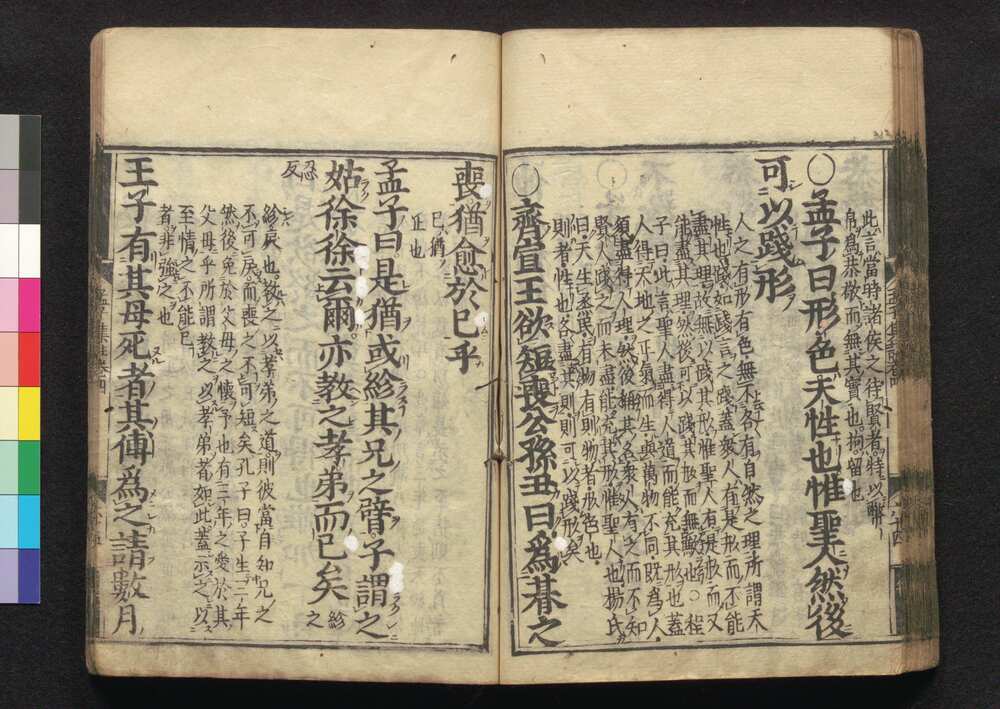 此言當時諸侯之待賢者特以幣
帛爲恭敬而無其實也拘留也
○孟子曰形色天性也惟聖人然後
可以踐形
人之有形有色無不各有自然之理所謂天
性也踐如踐言之踐蓋衆人有是形而不能
盡其理故無以踐其形惟聖人有是形而又
能盡其理然後可以踐其形而無歉也○程
子曰此言聖人盡得人道而能充其形也蓋
人得天地之正氣而生與萬物不同既爲人
須盡得人理然後稱其名衆人有之而不知
賢人踐之而未盡能充其形惟聖人也楊氏
曰天生烝民有物有則物者形色也
則者性也各盡其則則可以踐形矣
○齊宣王欲短喪公孫丑曰爲朞之
喪猶愈於已乎
已猶
止也
孟子曰是猶或紾其兄之臂子謂之
姑徐徐云爾亦教之孝弟而已矣
紾之
忍反
紾戾也教之以孝弟之道則彼當自知兄之
不可戾而喪之不可短矣孔子曰子生三年
然後免於父母之懷予也有三年之愛於其
父母乎所謂教之以孝弟者如此蓋示之以
至情之不能已
者非強之也
王子有其母死者其傅爲之請數月